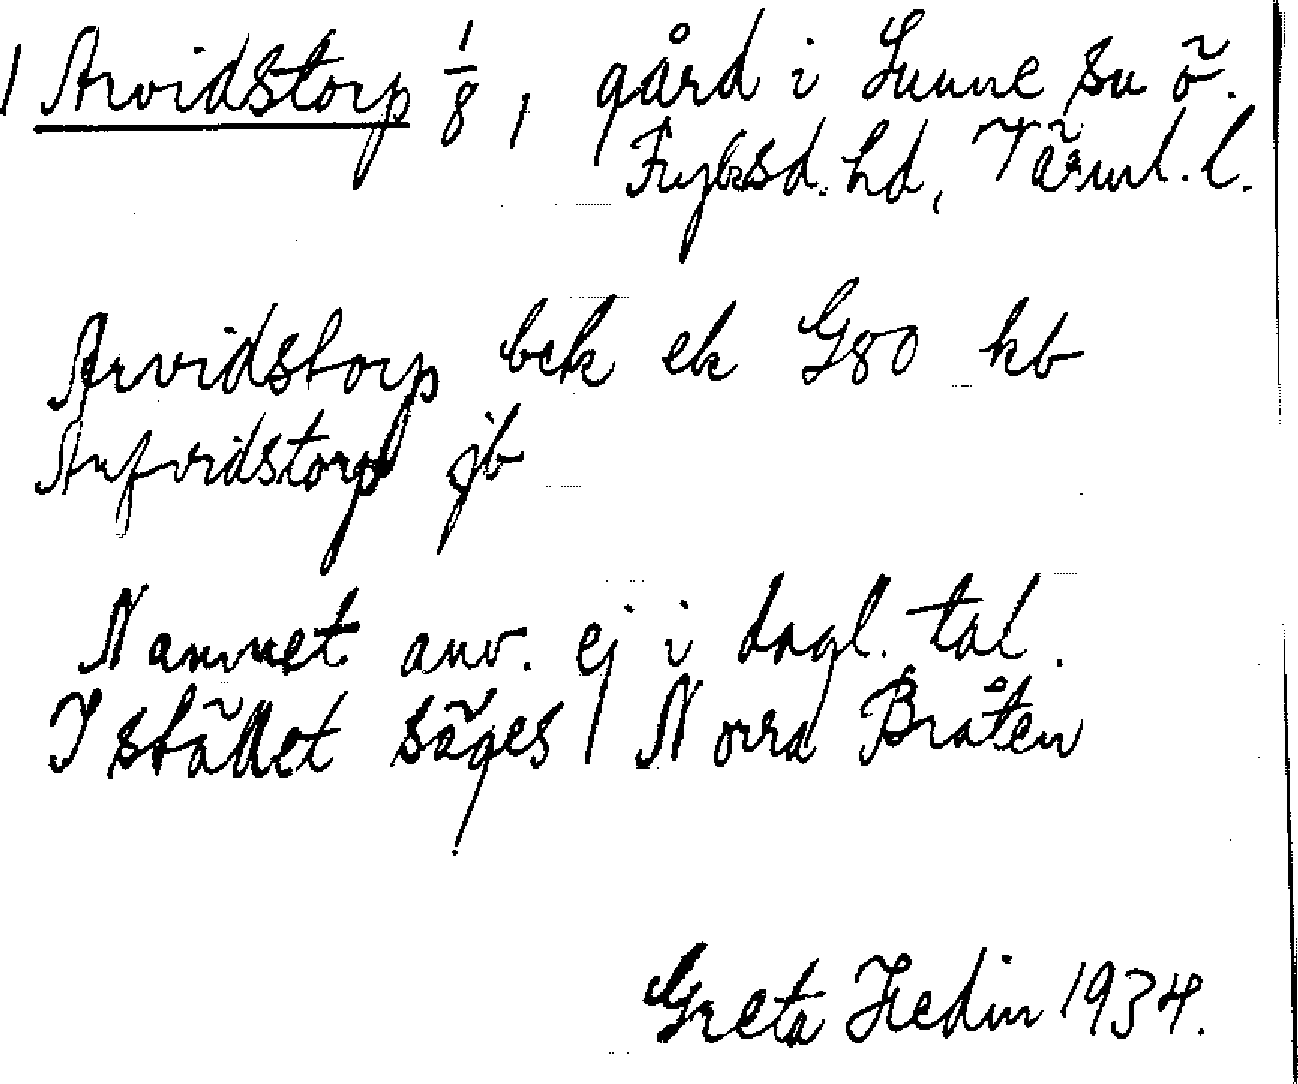 1 Arvidstorp 1/8, gård i Sunne sn ö.
Fryksd. hd, Värml. l.
Arvidstorp bek ek G80 kb
Arfvidstorp jb
Namnet anv. ej i dagl. tal.
I stället säges Norra Bråten
Greta Hedin 1934.